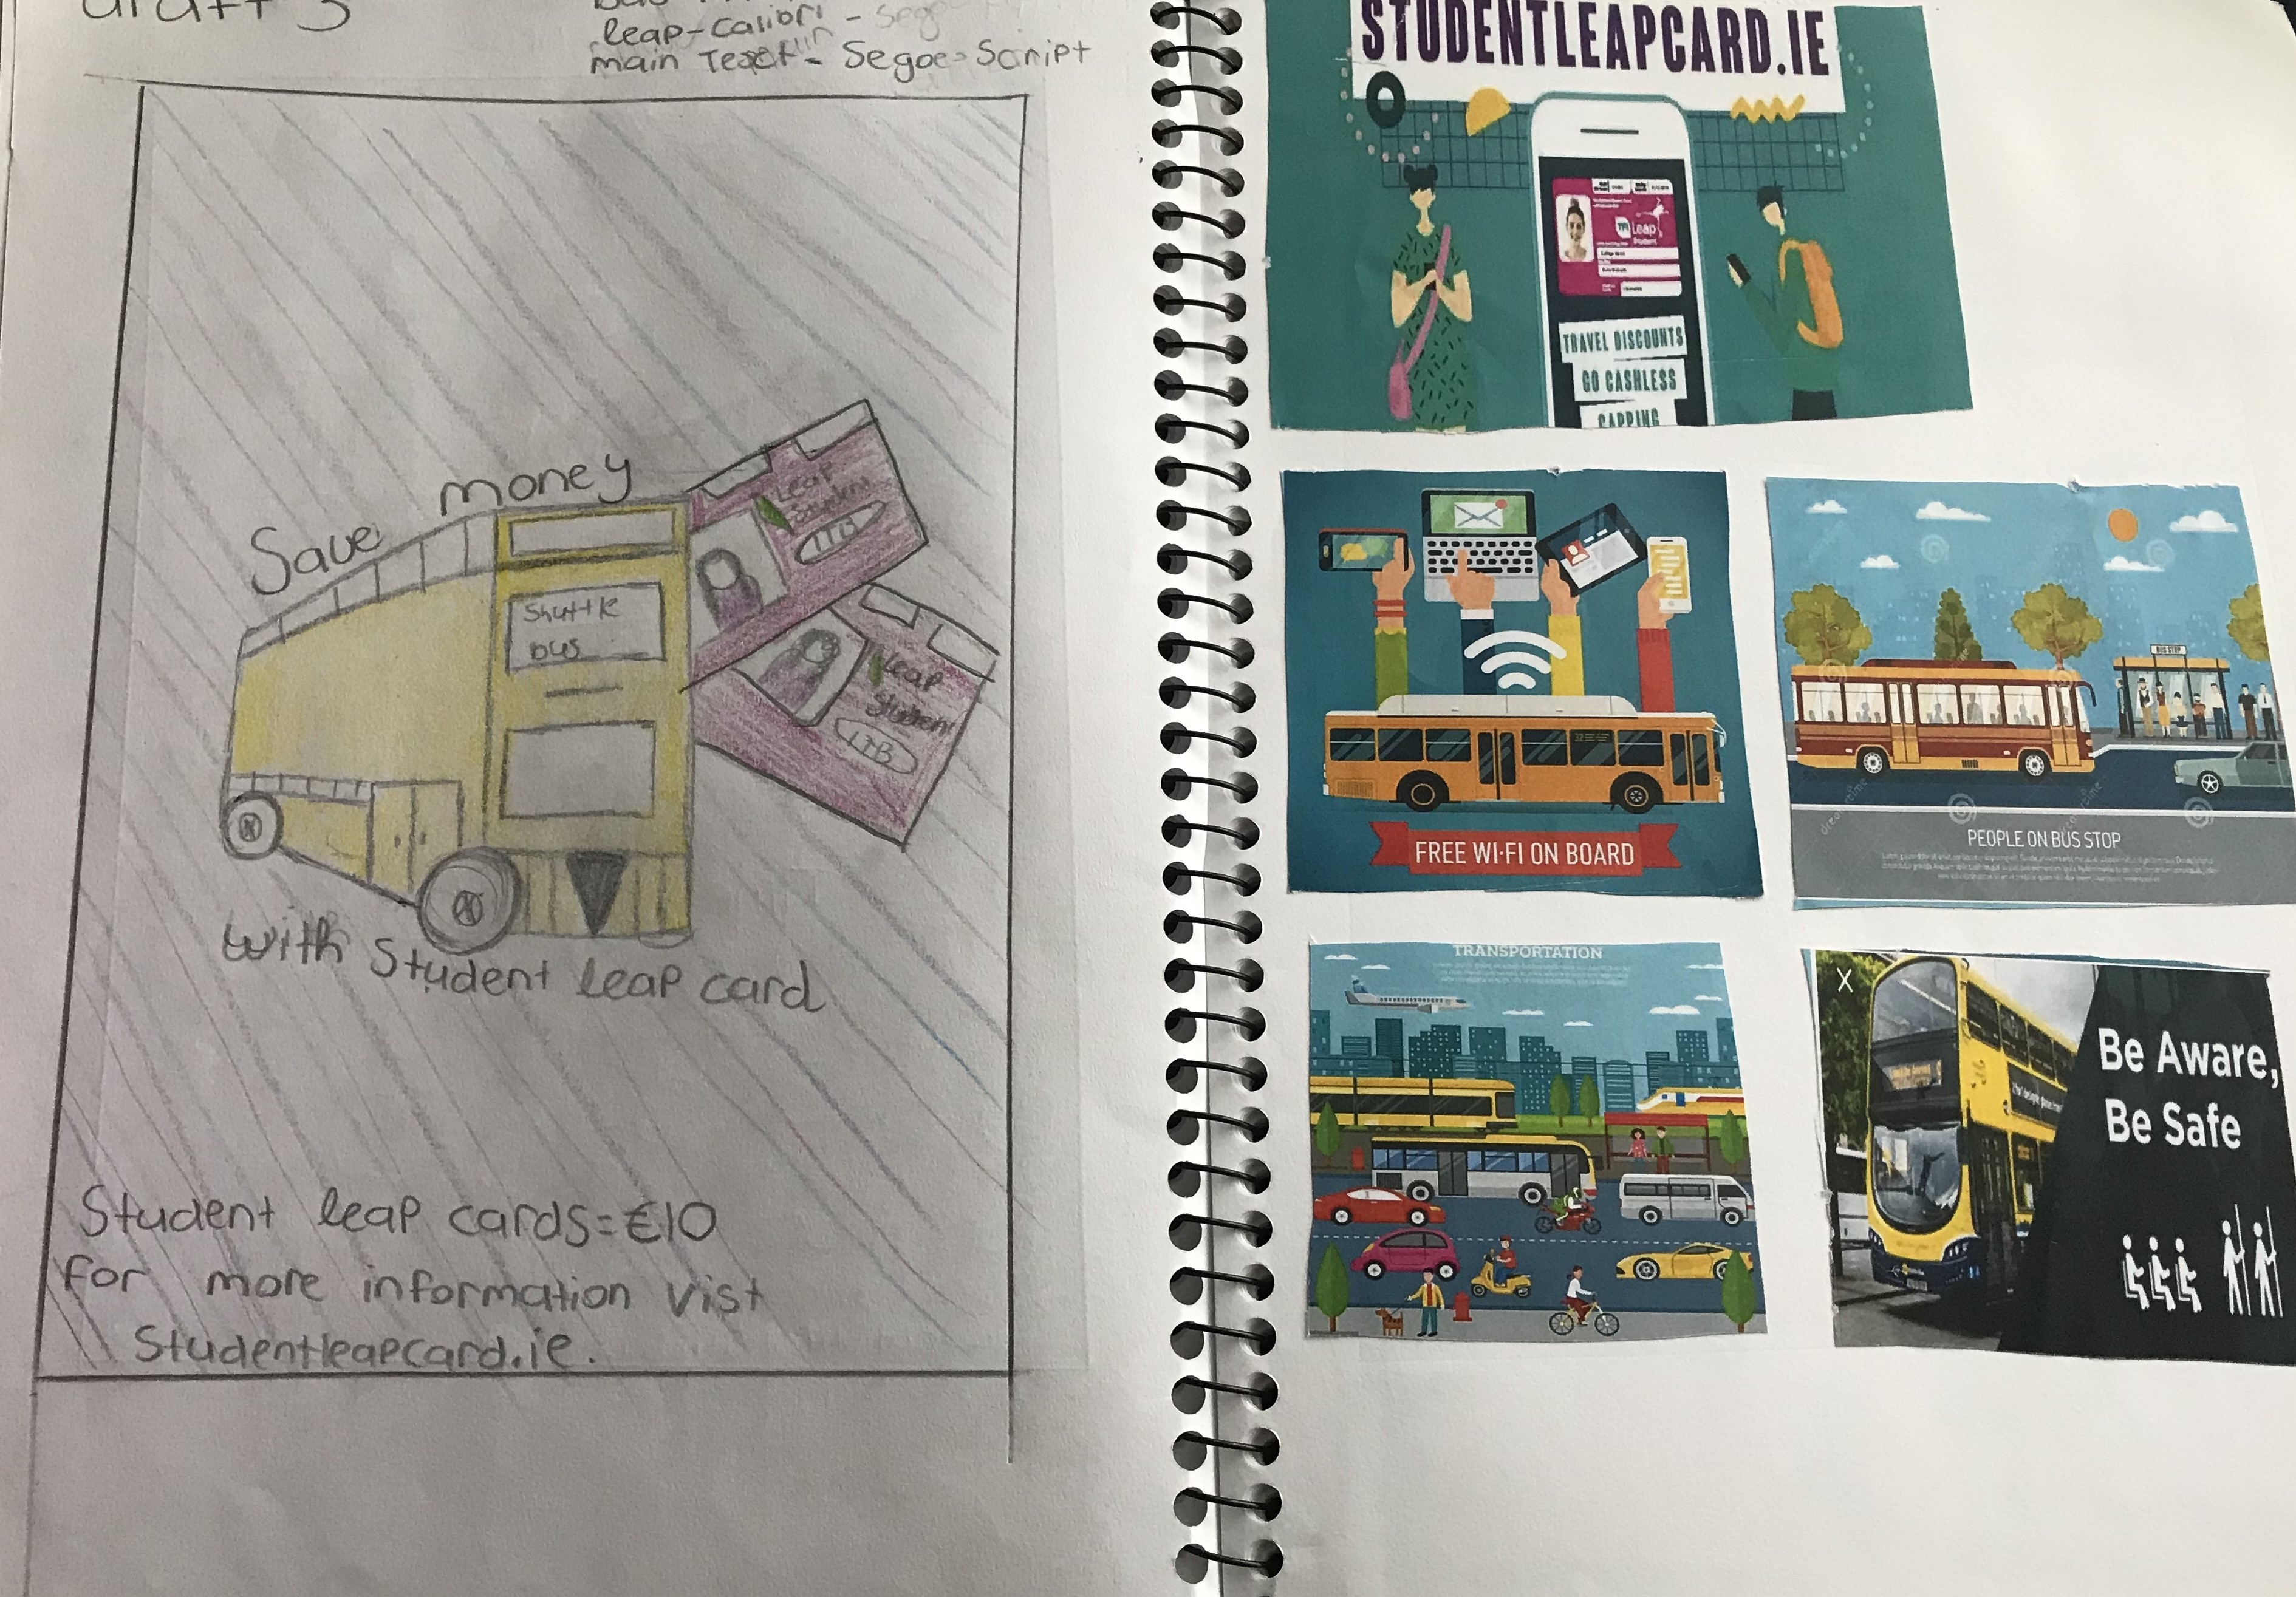 draft 3
leap-Calibri - Sego
main Text - Segoe Script
Save money
Shuttle
bus
Leap
Student
ITB
Leap
Student
ITB
with Student leap card
Student leap cards=€10
for more information vist
Studentleapcard.ie.
STUDENTLEAPCARD.IE
Leap
Student
TRAVEL DISCOUNTS
GO CASHLESS
CAPPING
FREE WI-FI ON BOARD
BUS STOP
PEOPLE ON BUS STOP
dreamstime
dreamstime
TRANSPORTATION
X
Be Aware,
Be Safe